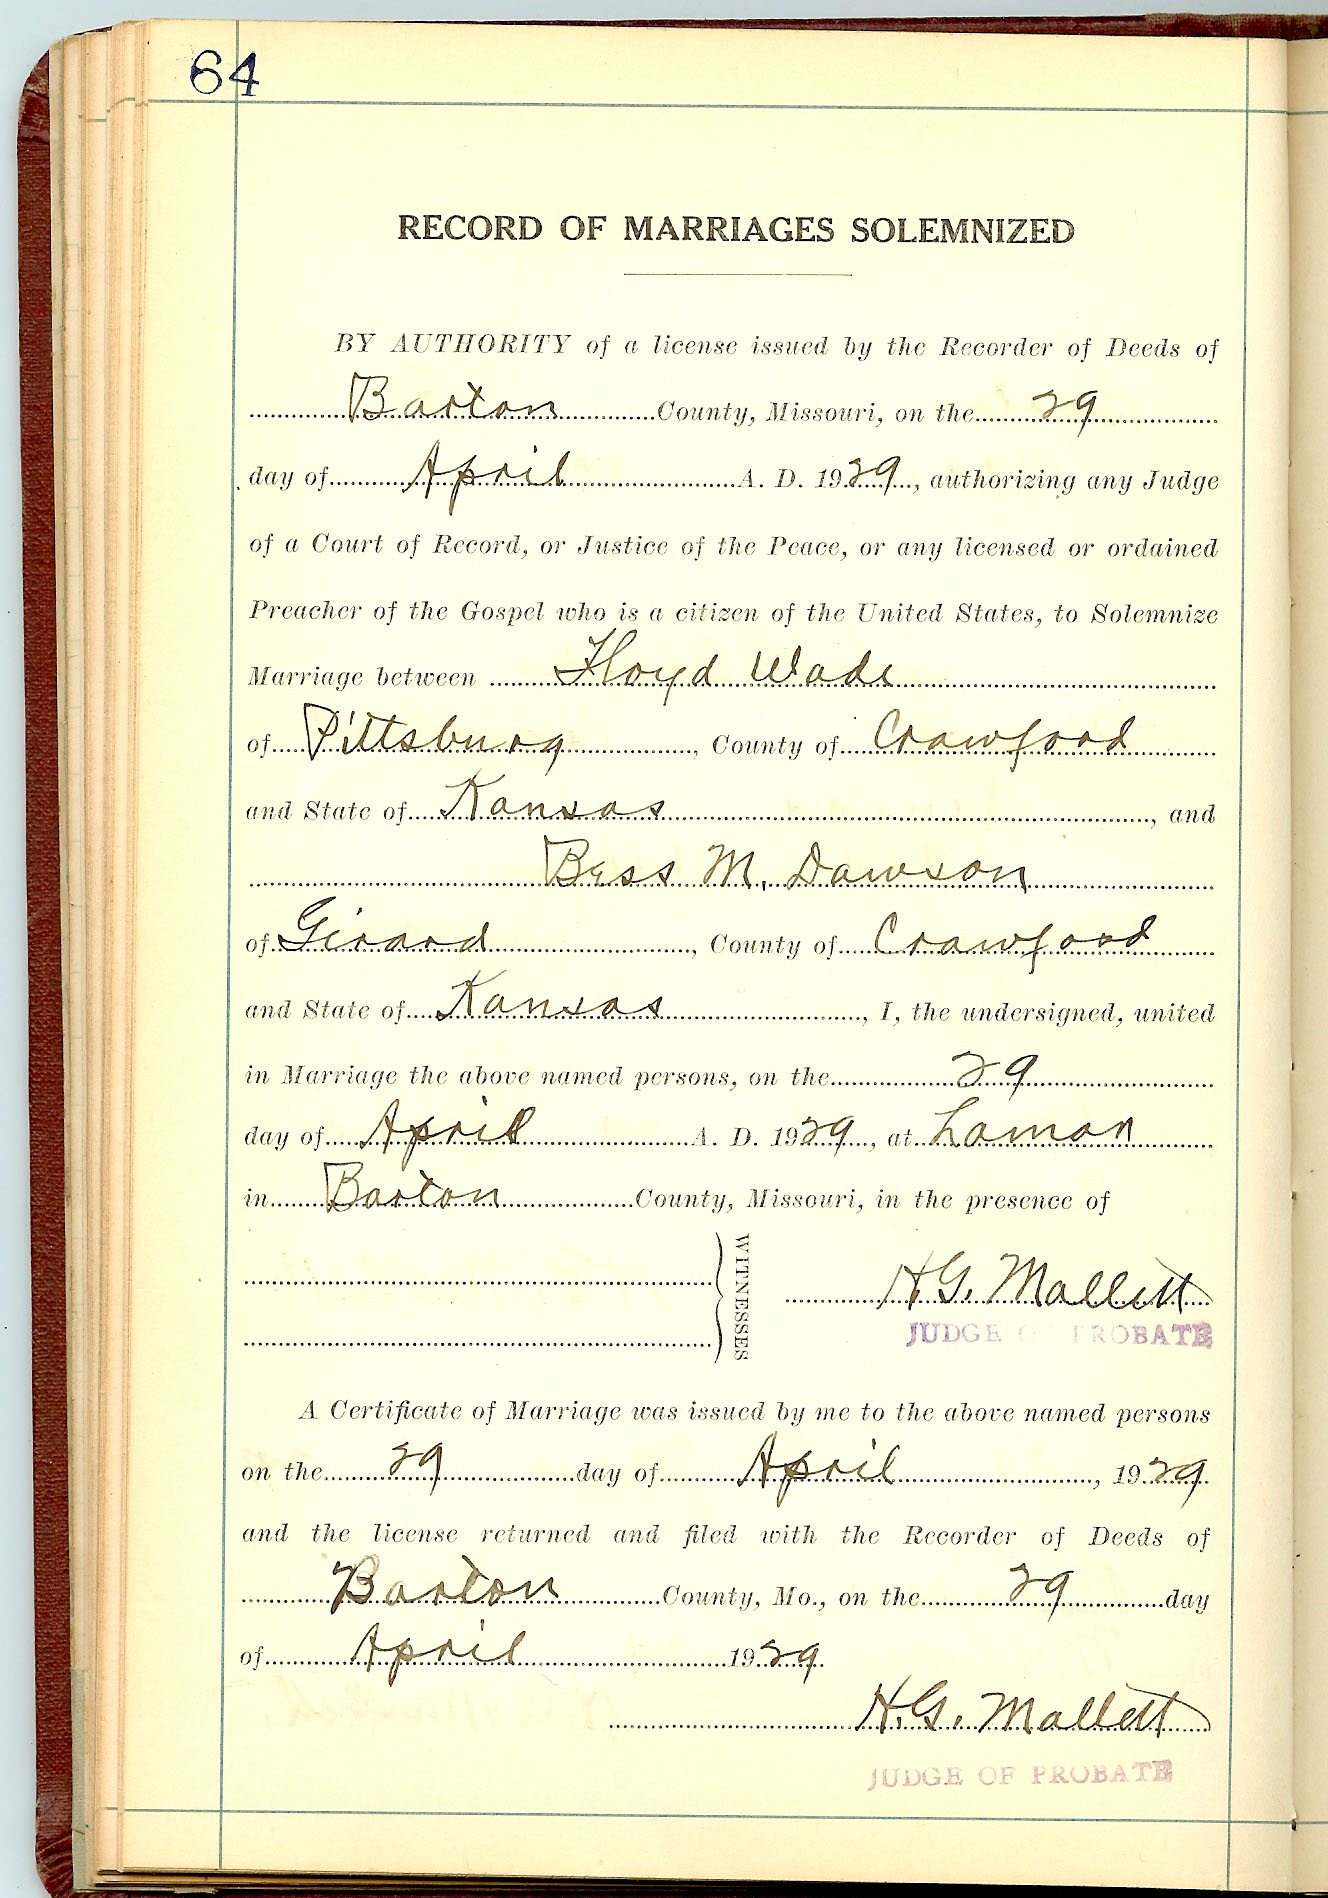 64
RECORD OF MARRIAGES SOLEMNIZED
BY AUTHORITY of a license issued by the Recorder of Deeds of
Barton County, Missouri, on the 29
day of April A. D. 1929, authorizing any Judge
of a Court of Record, or Justice of the Peace, or any licensed or ordained
Preacher of the Gospel who is a citizen of the United States, to Solemnize
Marriage between Floyd Wade
of Pittsburg, County of Crawford
and State of Kansas, and
Bess M. Dawson
of Girard, County of Crawford
and State of Kansas, I, the undersigned, united
in Marriage the above named persons, on the 29
day of April A. D. 1929, at Lamar
in Barton County, Missouri, in the presence of
WITNESSES
H.G. Mallett
JUDGE OF PROBATE
A Certificate of Marriage was issued by me to the above named persons
on the 29 day of April, 1929
and the license returned and filed with the Recorder of Deeds of
Barton County, Mo., on the 29 day
of April 1929.
H.G. Mallett
JUDGE OF PROBATE